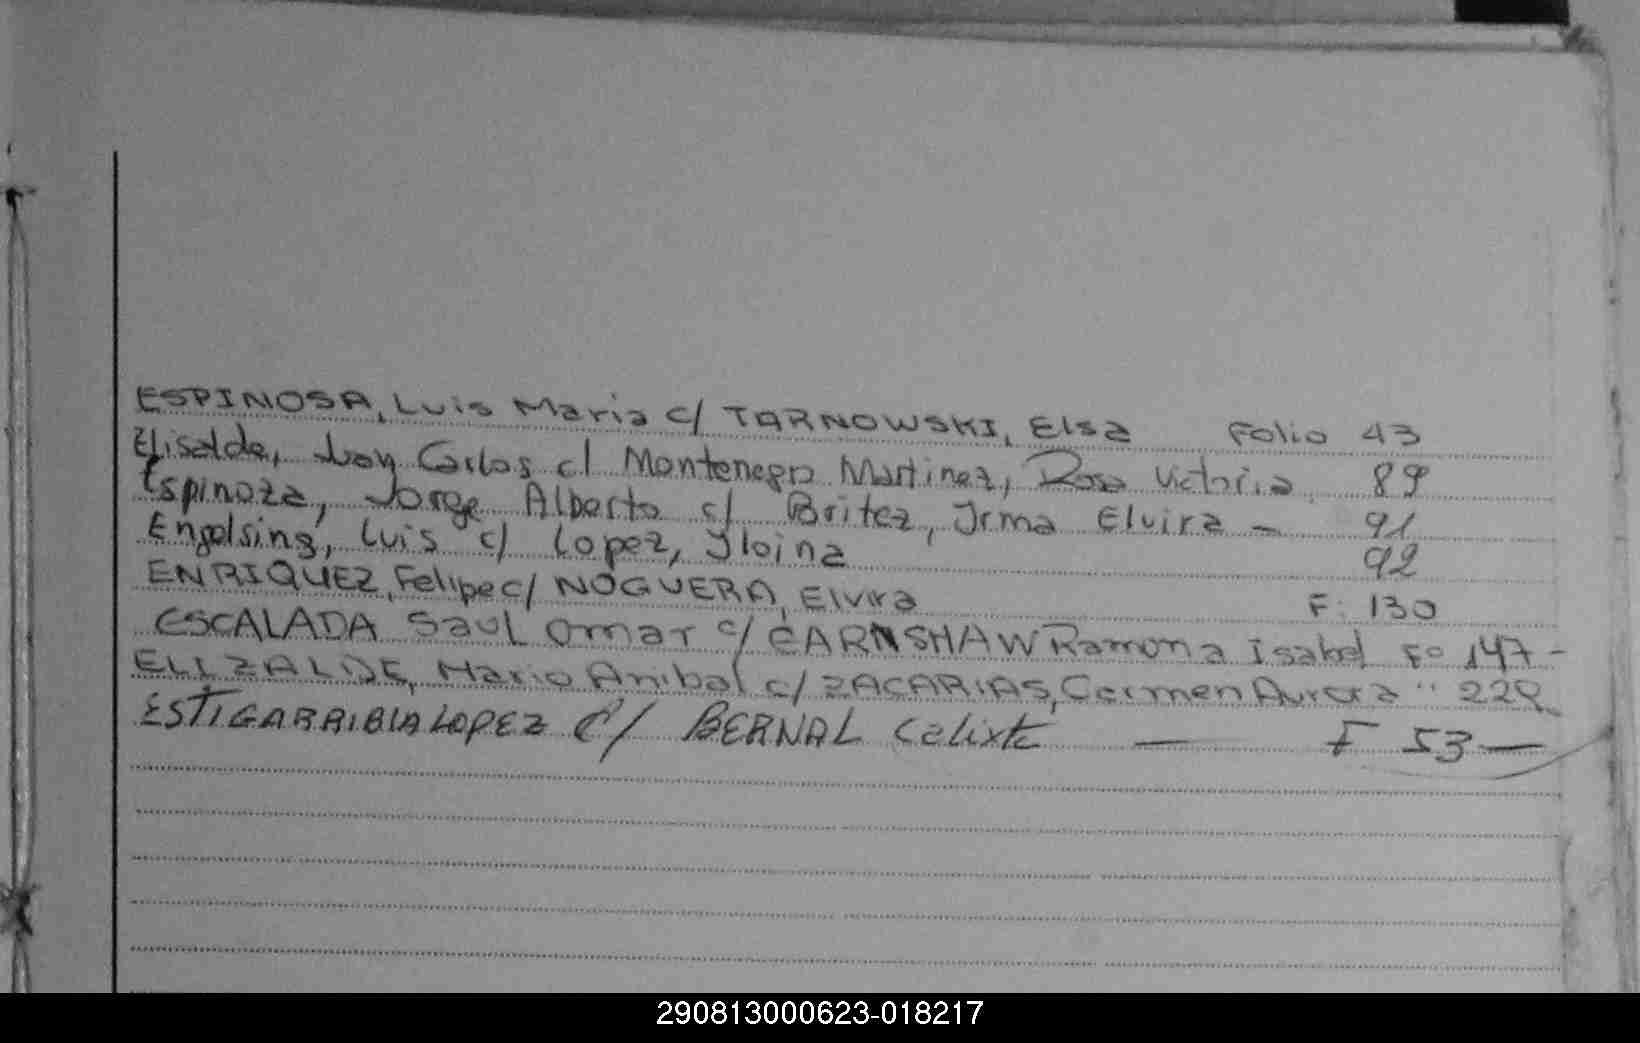 ESPINOSA, Luis Maria c/ TARNOWSKI, Elsa Folio 43
Elisalde, Juan Carlos c/ Montenegro Martinez, Rosa Victoria 89
Espinoza, Jorge Alberto c/ Britez, Irma Elvira - 91
Engelsing, Luis c/ Lopez, 92
ENRIQUEZ, Felipe c/ NOGUERA, Elvira F: 130
ESCALADA Saul Omar c/ EARNSHAW Ramona Isabel Fº 147-
ELIZALDE, Mario Anibal c/ ZACARIAS, Carmen Aurora "
ESTIGARRIBIA LOPEZ c/ BERNAL — F 53 —
290813000623-018217